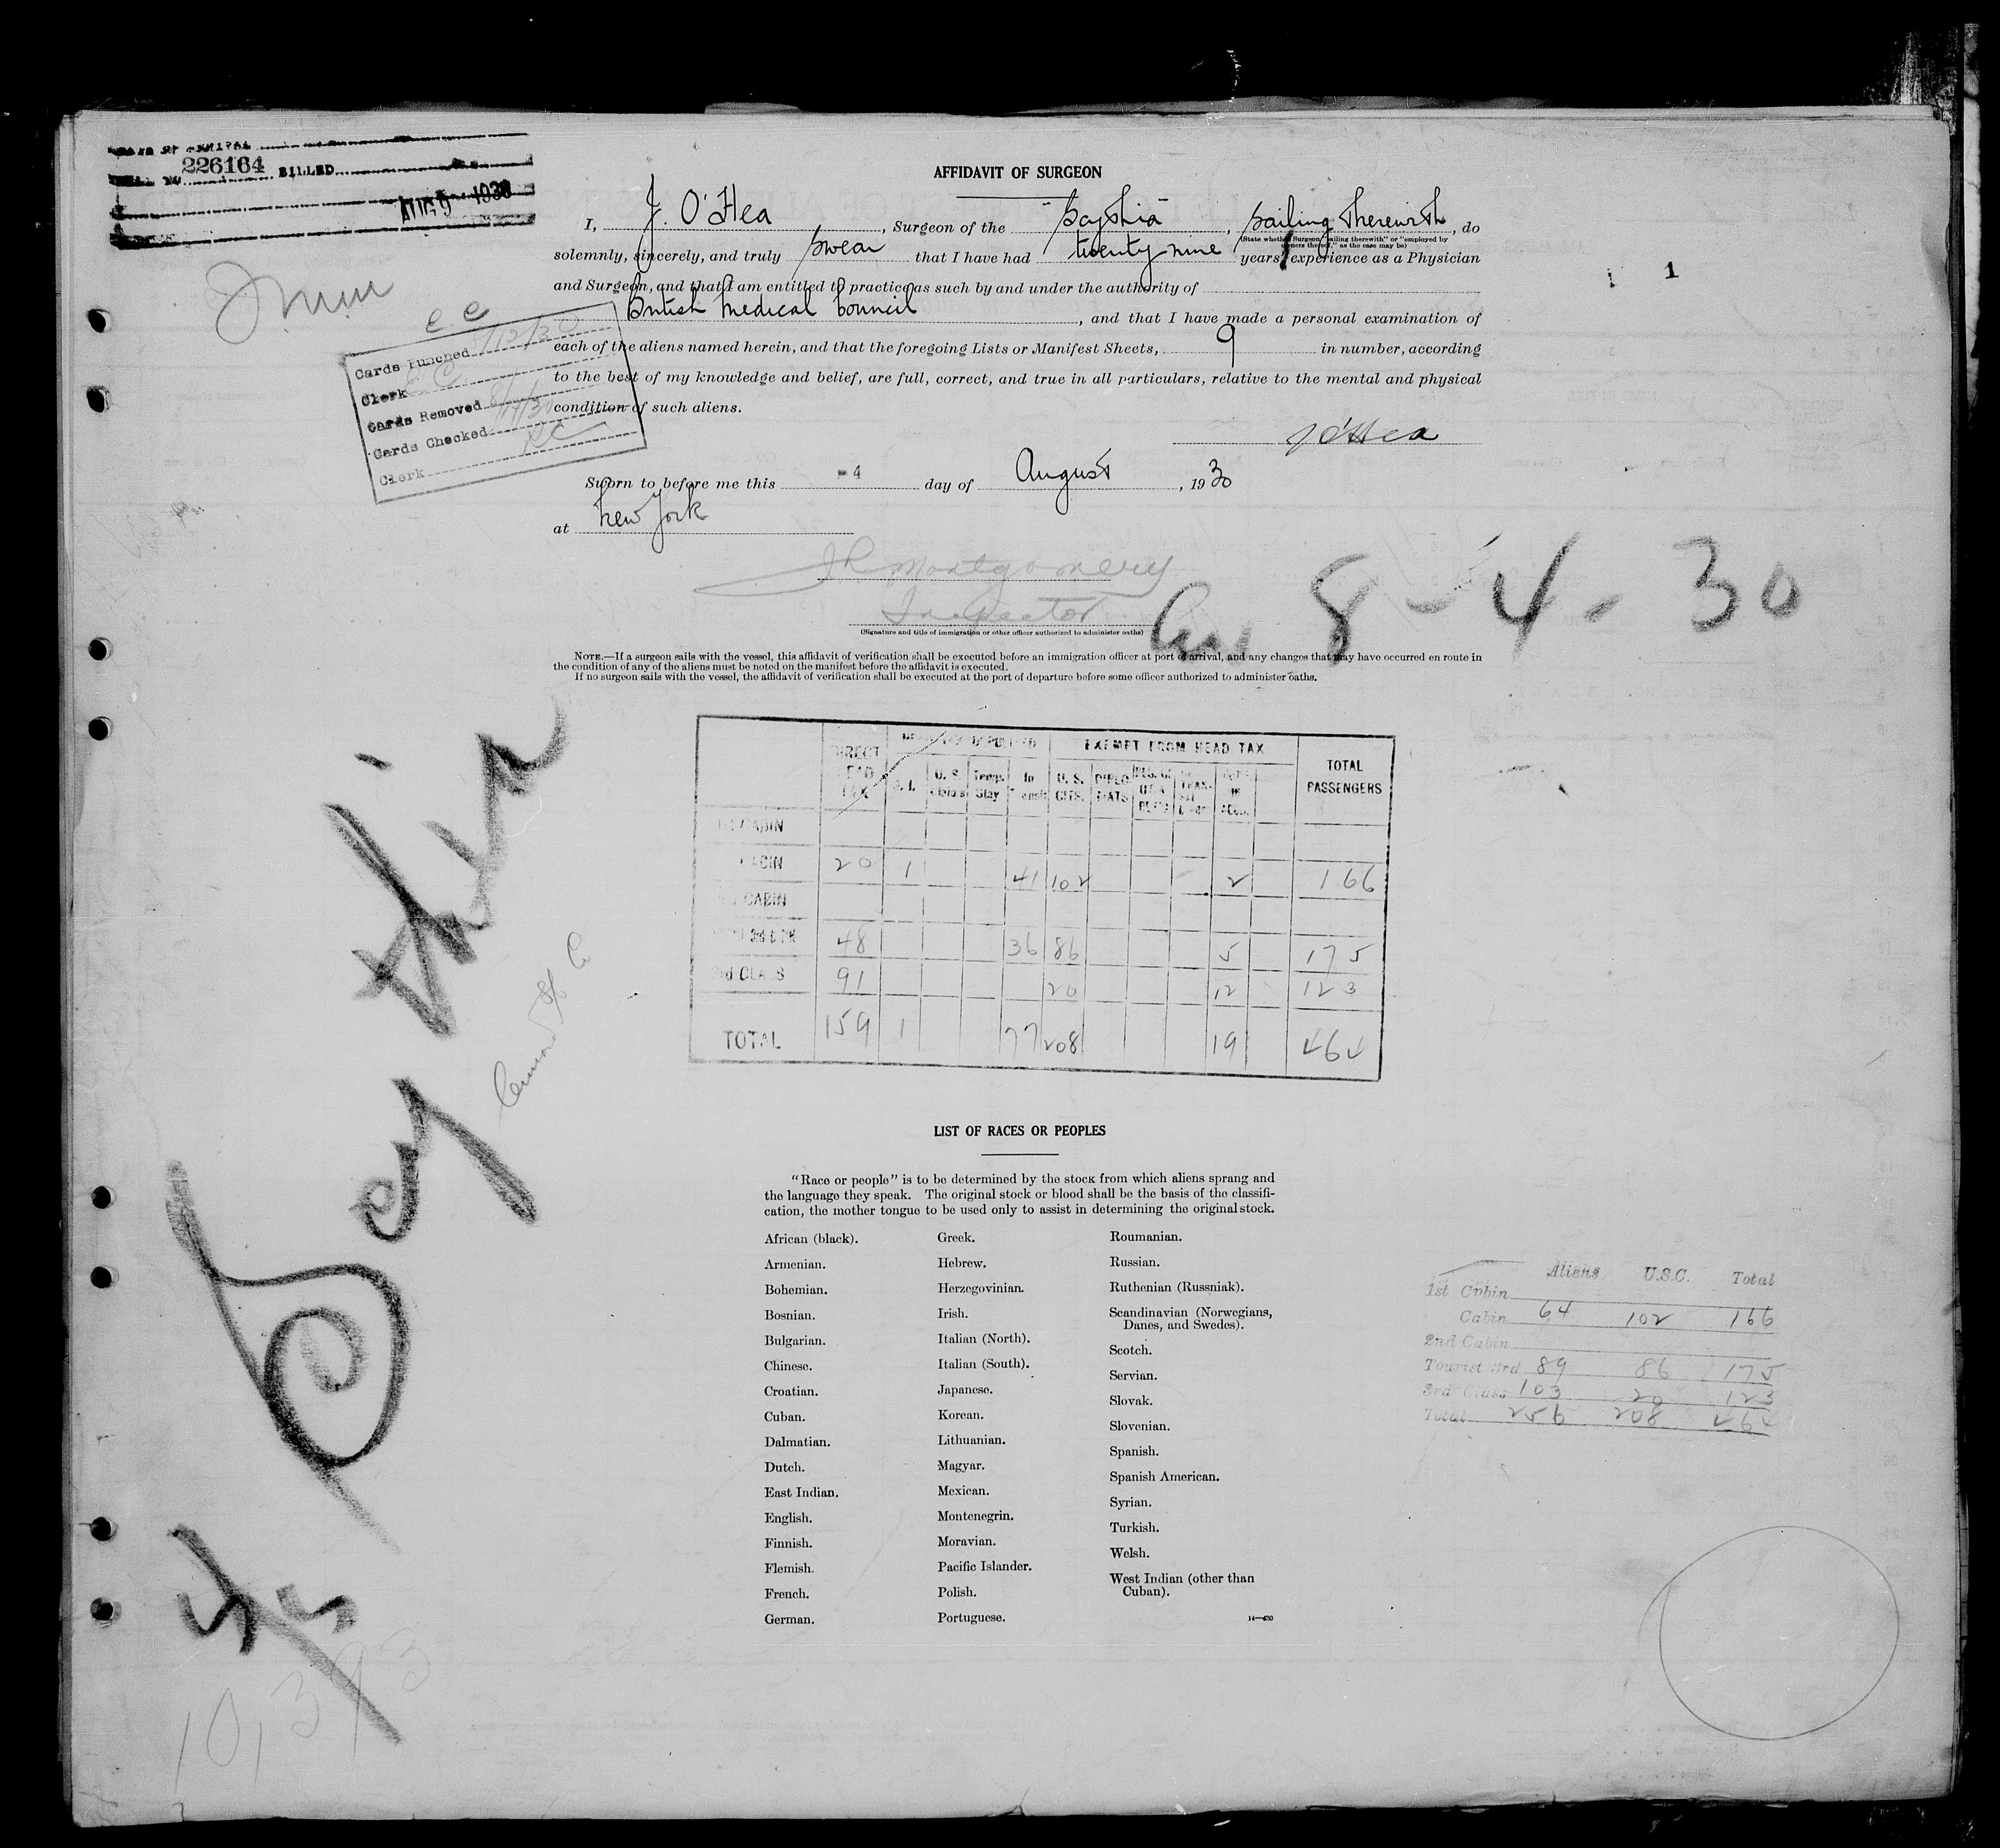 226164 BILLED
AUG 9 1930
AFFIDAVIT OF SURGEON
I, J. O'Hea, Surgeon of the "Scythia", Sailing therewith, do
(State whether Surgeon "sailing therewith" or "employed by
owners thereof," as the case may be)
solemnly, sincerely, and truly swear that I have had twenty nine years' experience as a Physician
and Surgeon, and that I am entitled to practice as such by and under the authority of
British Medical Council, and that I have made a personal examination of
each of the aliens named herein, and that the foregoing Lists or Manifest Sheets, 9 in number, according
to the best of my knowledge and belief, are full, correct, and true in all particulars, relative to the mental and physical
condition of such aliens.
J O'Hea
1
Cards Punched
Clerk
Cards Removed
Cards Checked
Clerk
Sworn to before me this 4 day of August, 1930
at New York
Montgomery
Inspector
(Signature and title of immigration or other officer authorized to administer oaths)
8-4-30
NOTE.—If a surgeon sails with the vessel, this affidavit of verification shall be executed before an immigration officer at port of arrival, and any changes that may have occurred en route in
the condition of any of the aliens must be noted on the manifest before the affidavit is executed.
If no surgeon sails with the vessel, the affidavit of verification shall be executed at the port of departure before some officer authorized to administer oaths.
Scythia
DIRECT HEAD TAX
EXEMPT FROM HEAD TAX
TOTAL PASSENGERS
U. S. Temp. Stay In Transit U. S. CITS. DIPLOMATS
CABIN 20 1 41 102 2 166
CABIN
48 36 86 5 175
91 20 12 123
TOTAL 159 1 77 208 19 464
LIST OF RACES OR PEOPLES
"Race or people" is to be determined by the stock from which aliens sprang and
the language they speak. The original stock or blood shall be the basis of the classifi-
cation, the mother tongue to be used only to assist in determining the original stock.
African (black).
Armenian.
Bohemian.
Bosnian.
Bulgarian.
Chinese.
Croatian.
Cuban.
Dalmatian.
Dutch.
East Indian.
English.
Finnish.
Flemish.
French.
German.
Greek.
Hebrew.
Herzegovinian.
Irish.
Italian (North).
Italian (South).
Japanese.
Korean.
Lithuanian.
Magyar.
Mexican.
Montenegrin.
Moravian.
Pacific Islander.
Polish.
Portuguese.
Roumanian.
Russian.
Ruthenian (Russniak).
Scandinavian (Norwegians,
Danes, and Swedes).
Scotch.
Servian.
Slovak.
Slovenian.
Spanish.
Spanish American.
Syrian.
Turkish.
Welsh.
West Indian (other than
Cuban).
Aliens U.S.C. Total
1st Cabin
Cabin 64 102 166
2nd Cabin
Tourist 3rd 89 86 175
3rd Class 103 20 123
Total 256 208 464
10,393